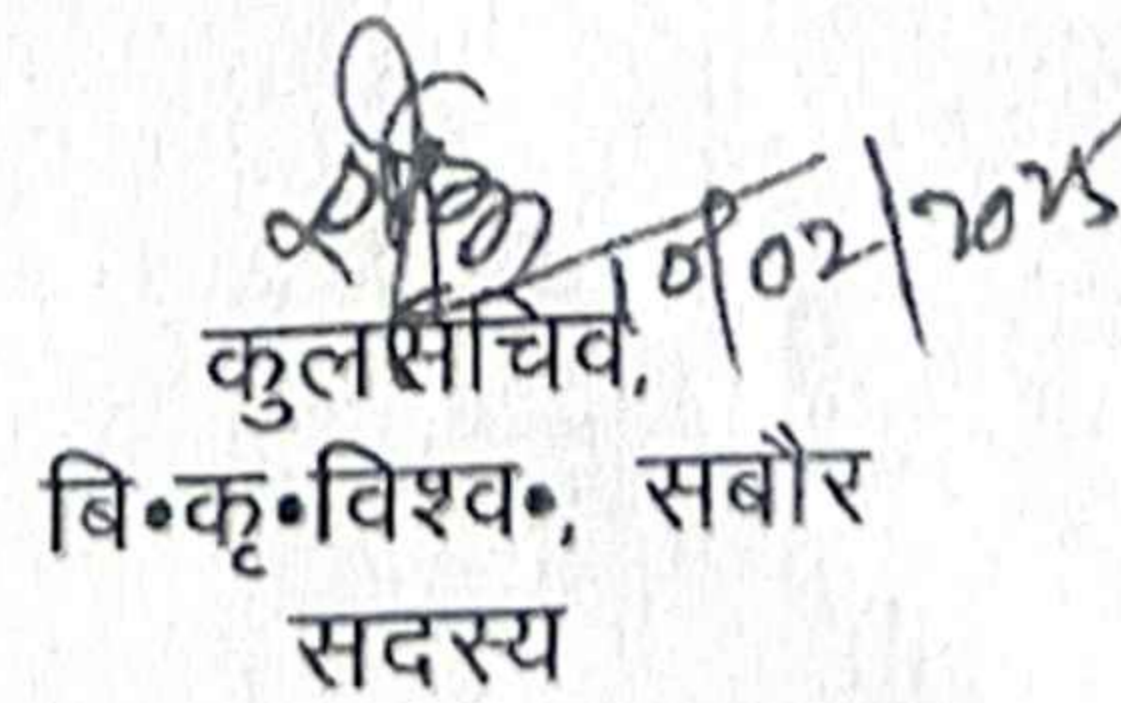 10/02/2025
कुलसचिव,
बि॰कृ॰विश्व॰, सबौर
सदस्य